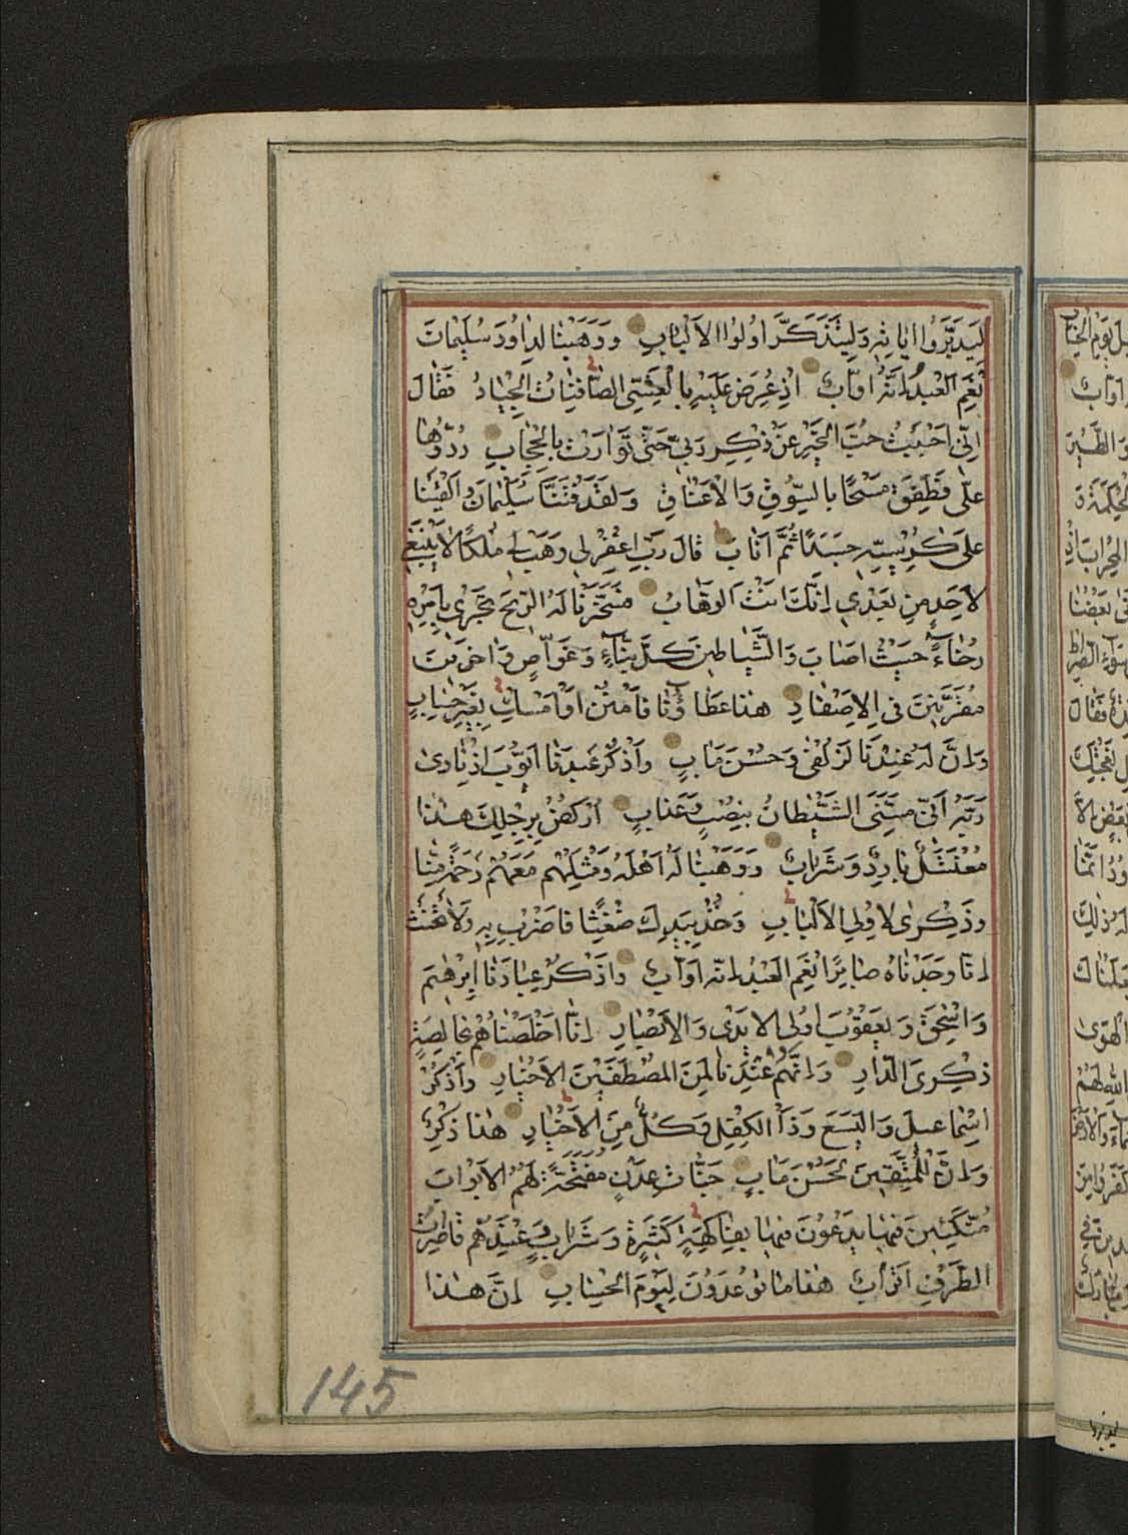 لِيَدَّبَّرُوا اٰيٰاتِهِ وَلِيَتَذَكَّرَ اُولُوا الاَلْبٰابِ وَوَهَبْنٰا لِدٰاوُدَ سُلَيْمٰانَ
نِعْمَ الْعَبْدُ اِنَّهُ اَوّٰابٌ اِذْ عُرِضَ عَلَيْهِ بِالْعَشِىِّ الصّٰافِنٰاتُ الْجِيٰادُ فَقٰالَ
اِنّى اَحْبَبْتُ حُبَّ الْخَيْرِ عَنْ ذِكْرِ رَبّى حَتّٰى تَوٰارَتْ بِالْحِجٰابِ رُدُّوهٰا
عَلَىَّ فَطَفِقَ مَسْحًا بِالسُّوقِ وَالْاَعْنٰاقِ وَلَقَدْ فَتَنّٰا سُلَيْمٰانَ وَاَلْقَيْنٰا
عَلىٰ كُرْسِيِّهِ جَسَدًا ثُمَّ اَنٰابَ قٰالَ رَبِّ اغْفِرْلى وَهَبْ لى مُلْكًا لاٰ يَنْبَغى
لاَحَدٍ مِنْ بَعْدى اِنَّكَ اَنْتَ الوَهّٰابُ فَسَخَّرْنٰا لَهُ الرّيحَ تَجْرى بِاَمْرِهِ
رُخٰاءً حَيْثُ اَصٰابَ وَالشَّيٰاطينَ كُلَّ بَنّٰاءٍ وَغَوّٰاصٍ وَاٰخَرينَ
مُقَرَّنينَ فِى الاَصْفٰادِ هٰذٰا عَطٰاؤُنٰا فَامْنُنْ اَوْ اَمْسِكْ بِغَيْرِ حِسٰابٍ
وَاِنَّ لَهُ عِنْدَنٰا لَزُلْفٰى وَحُسْنَ مَاٰبٍ وَاذْكُرْ عَبْدَنٰا اَيُّوبَ اِذْ نٰادىٰ
رَبَّهُ اَنّى مَسَّنِىَ الشَّيْطٰانُ بِنُصْبٍ وَعَذٰابٍ اُرْكُضْ بِرِجْلِكَ هٰذٰا
مُغْتَسَلٌ بٰارِدٌ وَشَرٰابٌ وَوَهَبْنٰا لَهُ اَهْلَهُ وَمِثْلَهُمْ مَعَهُمْ رَحْمَةً مِنّٰا
وَذِكْرىٰ لاُولِى الاَلْبٰابِ وَخُذْ بِيَدِكَ ضِغْثًا فَاضْرِبْ بِهِ وَلاٰ تَحْنَثْ
اِنّٰا وَجَدْنٰاهُ صٰابِرًا نِعْمَ الْعَبْدُ اِنَّهُ اَوّٰابٌ وَاذْكُرْ عِبٰادَنٰا اِبْرٰهيمَ
وَاِسْحٰقَ وَيَعْقُوبَ اُولِى الاَيْدى وَالاَبْصٰارِ اِنّٰا اَخْلَصْنٰاهُمْ بِخٰالِصَةٍ
ذِكْرَى الدّٰارِ وَاِنَّهُمْ عِنْدَنٰا لَمِنَ الْمُصْطَفَيْنَ الاَخْيٰارِ وَاذْكُرْ
اِسْمٰاعيلَ وَالْيَسَعَ وَذَا الْكِفْلِ وَكُلٌّ مِنَ الاَخْيٰارِ هٰذٰا ذِكْرٌ
وَاِنَّ لِلْمُتَّقينَ لَحُسْنَ مَاٰبٍ جَنّٰاتِ عَدْنٍ مُفَتَّحَةً لَهُمُ الاَبْوٰابُ
مُتَّكِئينَ فيهٰا يَدْعُونَ فيهٰا بِفٰاكِهَةٍ كَثيرَةٍ وَشَرٰابٍ وَعِنْدَهُمْ قٰاصِرٰاتُ
الطَّرْفِ اَتْرٰابٌ هٰذٰا مٰا تُوعَدُونَ لِيَوْمِ الْحِسٰابِ اِنَّ هٰذٰا
145